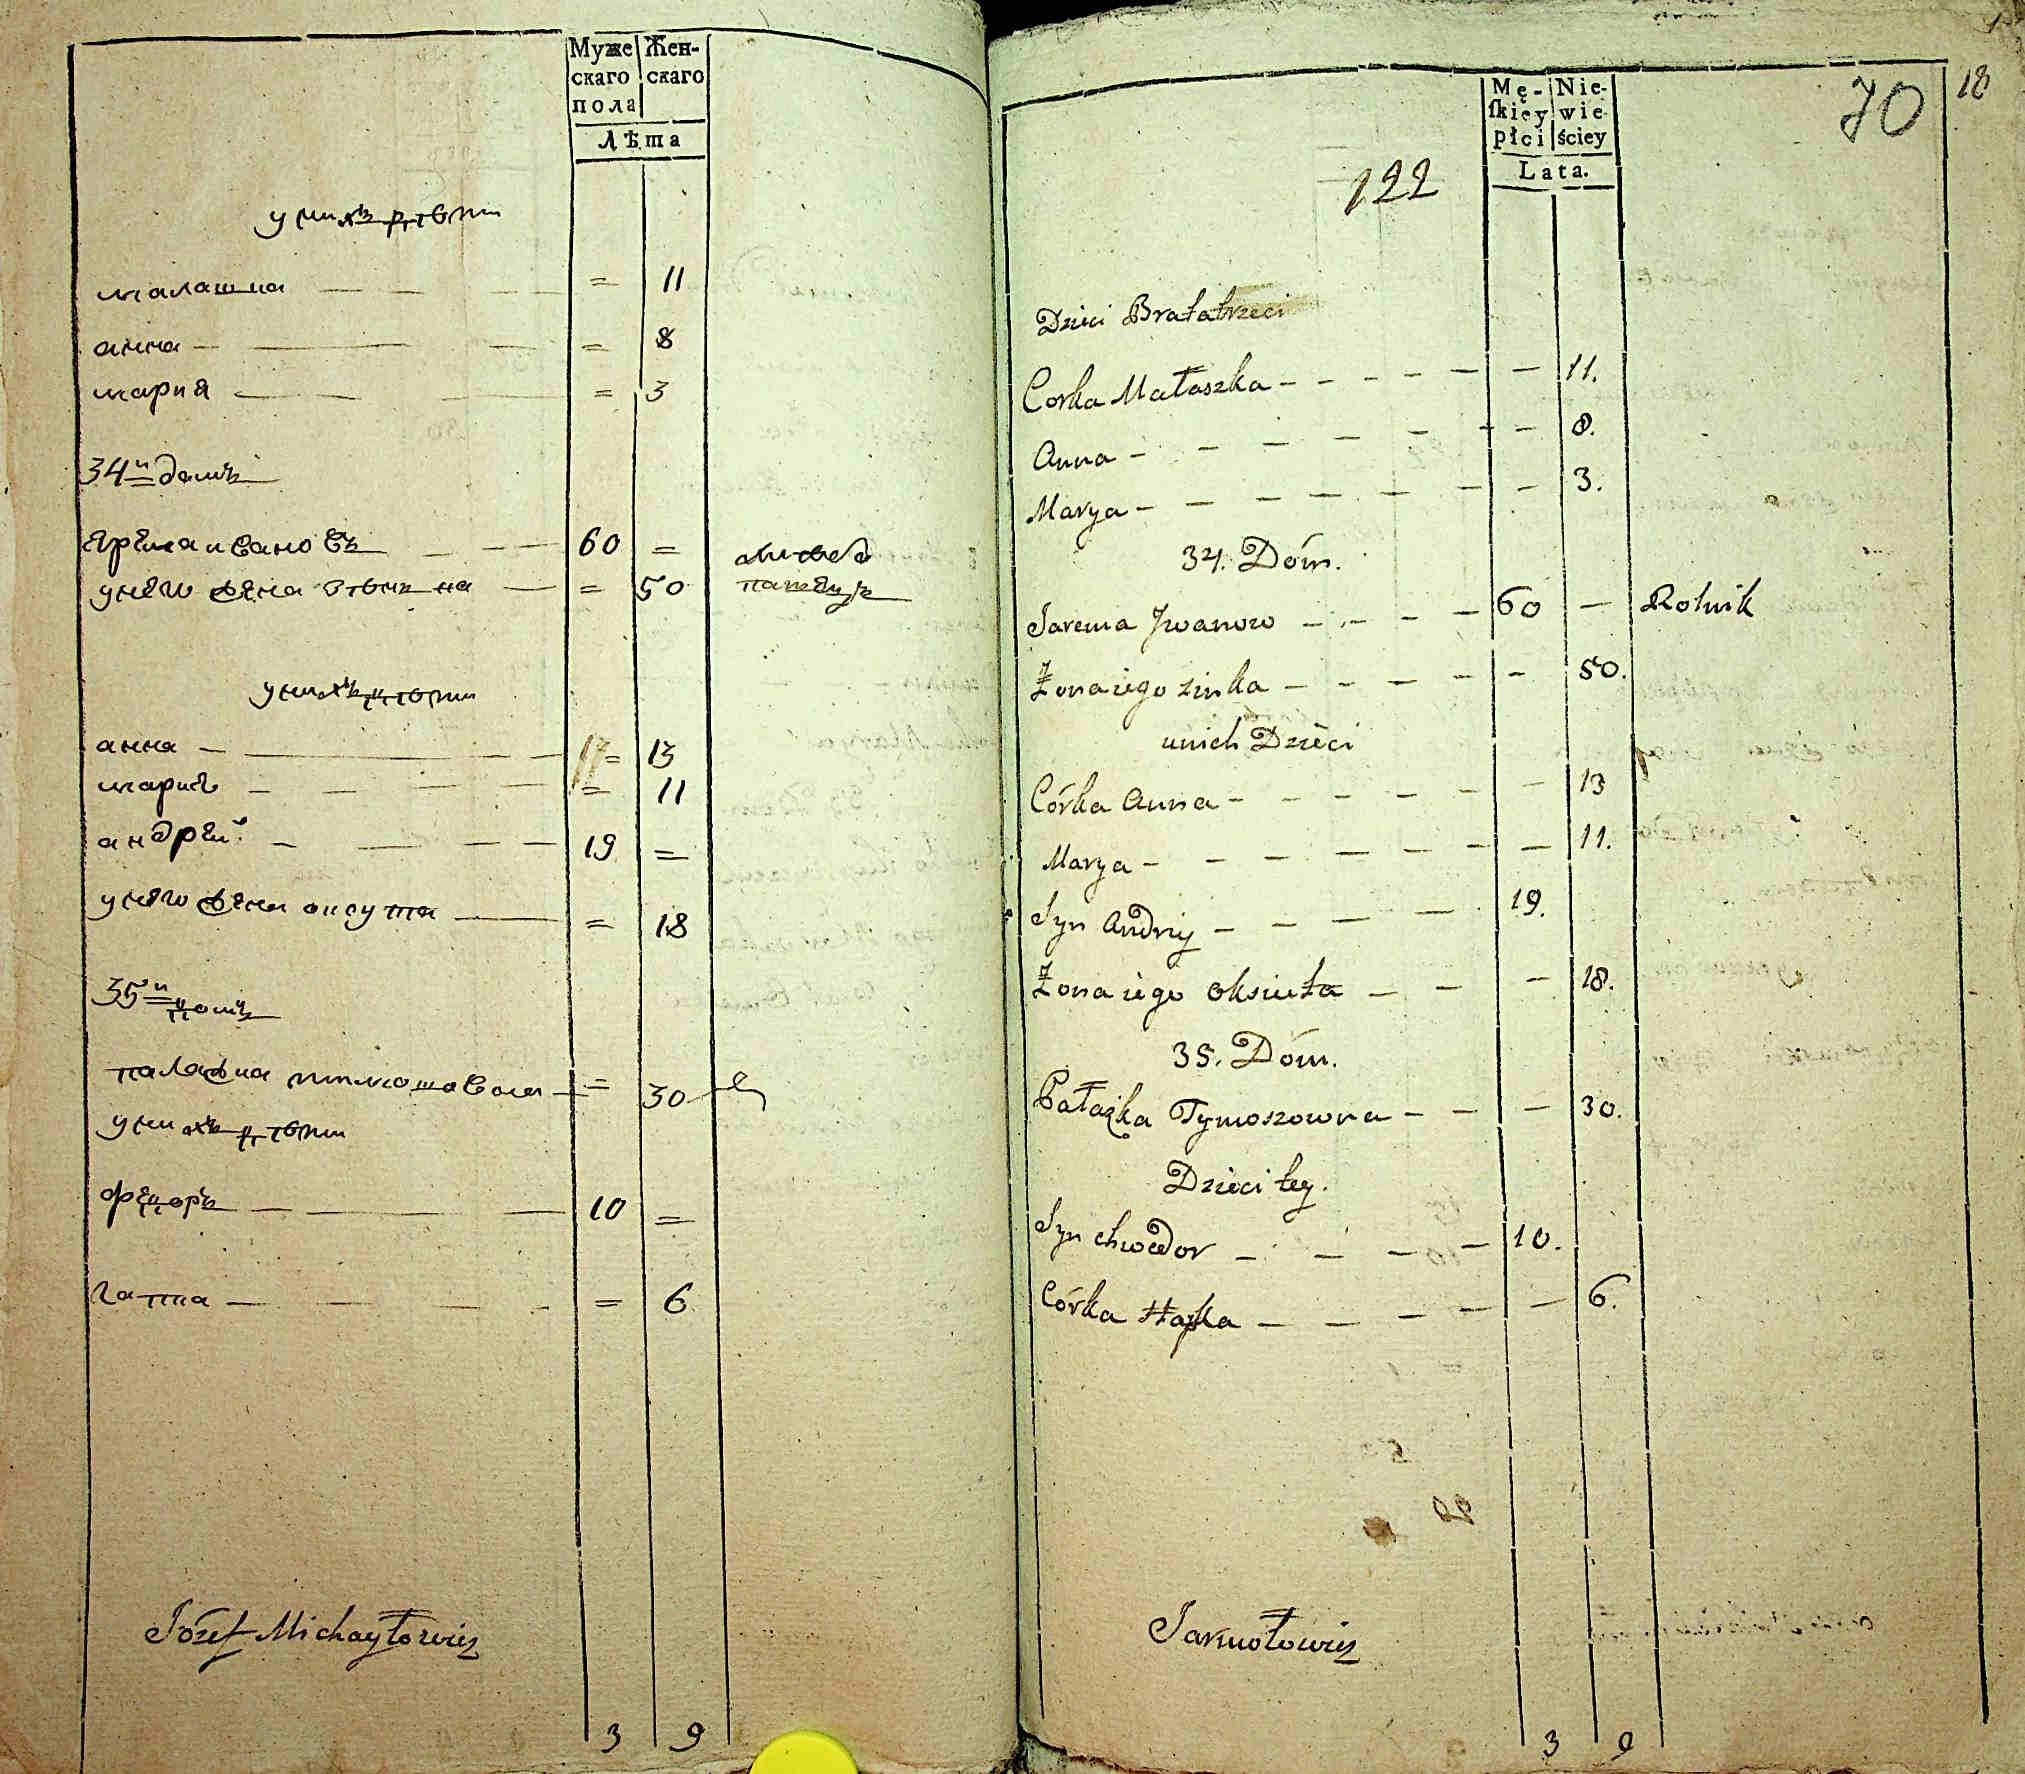 Муже Жен-
скаго скаго
пола
Лѣта
у нихъ дѣти
малашка = 11
анна = 8
мария = 3
34й домъ
Ярема ивановъ 60 =
у него жена зѣнька = 50
у нихъ дѣти
анна = 13
мария = 11
андрей 19 =
у него жена оксута = 18
35й домъ
палажка тимошовна = 30
у нихъ дѣти
федоръ 10 =
гапка = 6
Józef Michayłowicz
3 9
18
70
Mę- Nie-
ſkiey wie-
płci ściey
Lata.
122
Dzieci Brata trzeci
Corka Małaszka - 11.
Anna - 8.
Marya - 3.
34. Dóm.
Jarema Jwanow 60 - Rolnik
Żona iego zinka - 50.
unich Dzieci
Córka Anna - 13
Marya - 11.
Syn Andriy 19.
Żona iego oksiuta - 18.
35. Dóm.
Pałażka Tymoszowna - 30.
Dzieci tey.
Syn chwedor 10.
Córka Hapka - 6.
Jarmołowicz
3 9